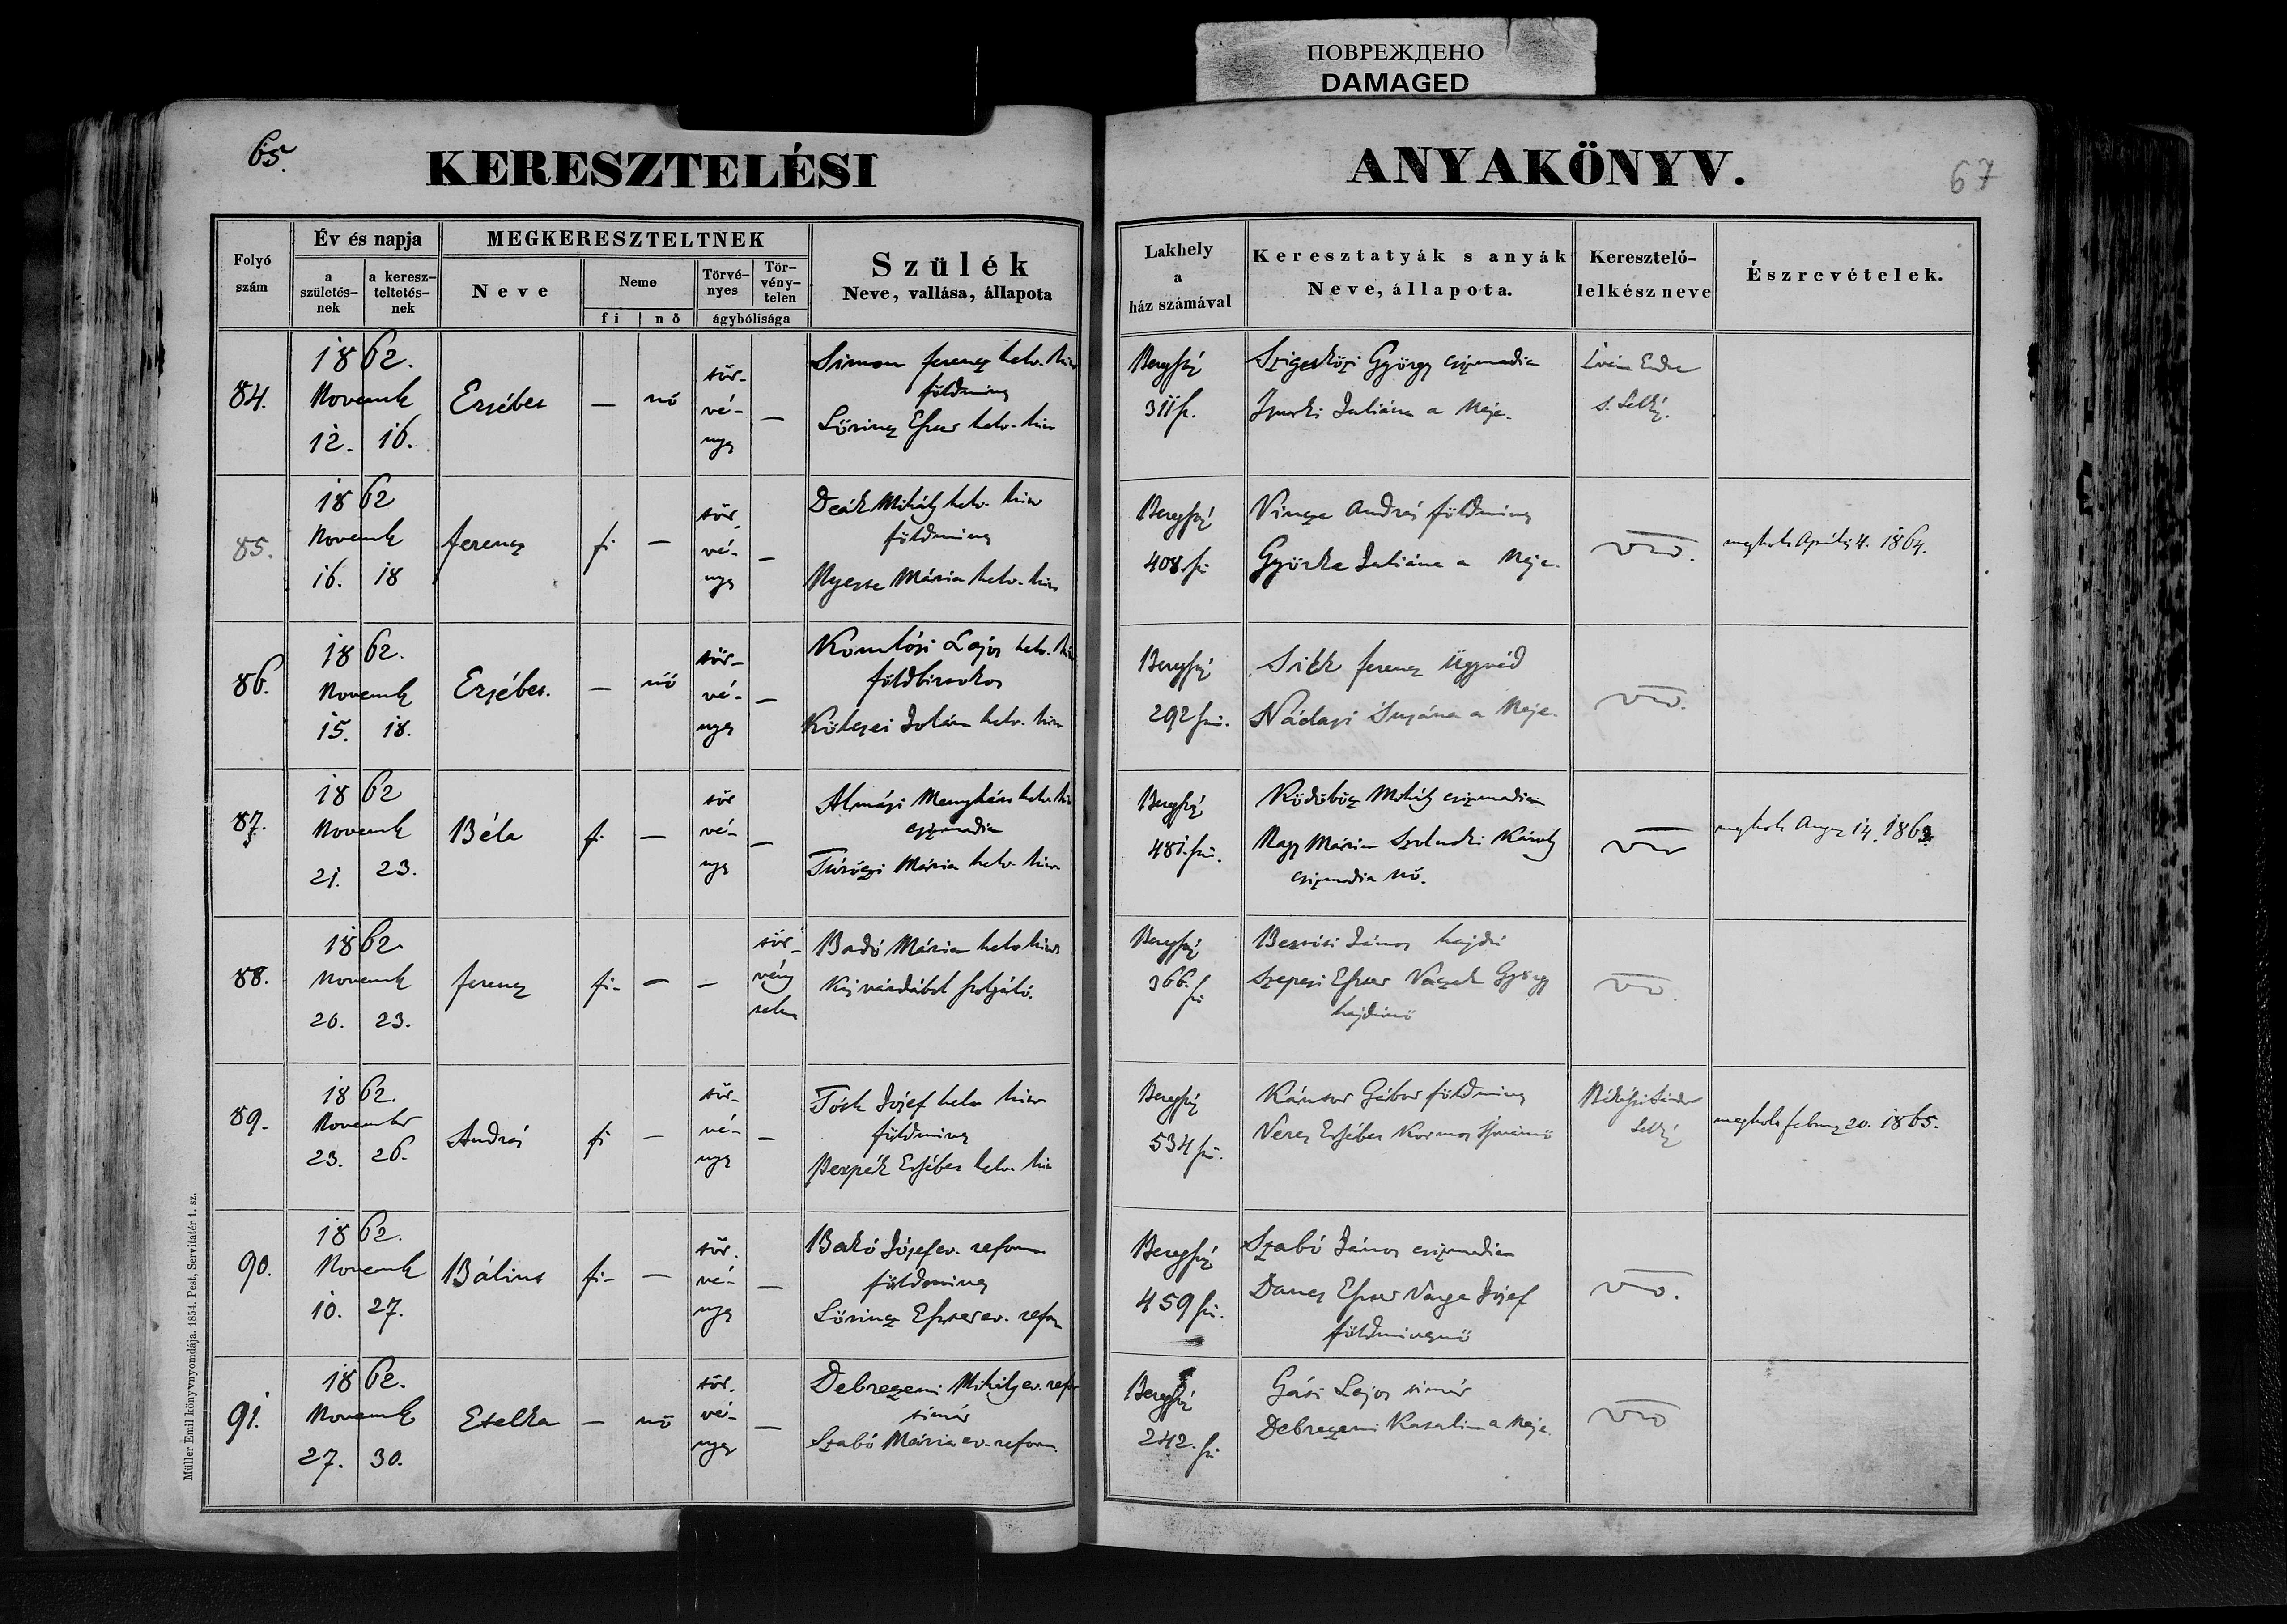 ПОВРЕЖДЕНО
DAMAGED
65.
KERESZTELÉSI
ANYAKÖNYV.
67
Folyó szám
Év és napja
a születés-nek
a keresz-teltetés-nek
MEGKERESZTELTNEK
Neve
Neme
fi
nő
Törvé-nyes
Tör-vény-telen
ágybólisága
Szülék
Neve, vallása, állapota
Lakhely
a
ház számával
Keresztatyák s anyák
Neve, állapota.
Keresztelő-
lelkész neve
Észrevételek.
84.
1862.
Novemb
12. 16.
Ersébet
—
nő
tör-
vé-
nyes
—
Simon ferencz helv. hitv
földmives
Lőrincz Eszter helv. hitv
Beregszász
311 sz.
György csizmadia
Juliána a Neje.
Endre
s. Lelkész.
85.
1862
Novemb
16. 18
ferencz
fi
—
tör.
vé-
nyes
—
Deák Mihály helv. hitv
földmives
Mária helv. hitv
Beregszász
408. sz
Vincze András földmives
Györke Juliána a Neje.
meghalt Április 4. 1864.
86.
1862.
Novemb
15. 18.
Ersébet.
—
nő
tör-
vé-
nyes
—
Komlósi Lajos helv. hitv
földbirtokos
Kölcsei helv. hitv
Beregszász
292 sz.
ferencz Ügyvéd
Nádasi Susána a Neje.
87.
1862
Novemb
21. 23.
Béla
fi
—
tör
vé-
nyes
—
Almási Menyhért helv. hitv
csizmadia
Mária helv. hitv
Beregszász
481. sz.
Mihály csizmadia
Nagy Mária Károly
csizmadia nő.
meghalt Aug 14. 1863.
88.
1862.
Novemb
20. 23.
ferencz
fi-
—
—
tör-
vény
telen
Badó Mária helv hitv
Kis várdából szolgáló.
Beregszász
366. sz
János hajdú
Szepesi Eszter György
hajdúnő
89.
1862.
November
23. 26.
András
fi
—
tör-
vé-
nyes
—
Tóth Jósef helv hitv
földmives
Ersébet helv hitv
Beregszász
534 sz.
Kántor Gábor földmives
Veres Ersébet Kormos
Lelkész
meghalt február 20. 1865.
90.
1862.
Novemb
10. 27.
Bálint
fi-
—
tör.
vé-
nyes
—
Bakó Jósef ev. reform
földmives
Lőrincz Eszter ev. reform
Beregszász
459 sz.
Szabó János csizmadia
Dancs Eszter Varga Jósef
földmivesnő
91.
1862.
Novemb
27. 30.
Etelka
—
nő
tör.
vé-
nyes
—
Debreczeni Mihály ev. refor
timár
Szabó Mária ev. reform.
Beregszász
242. sz
Gási Lajos timár
Debreczeni Katalin a Neje.
Müller Emil könyvnyomdája. 1854. Pest, Servitatér 1. sz.